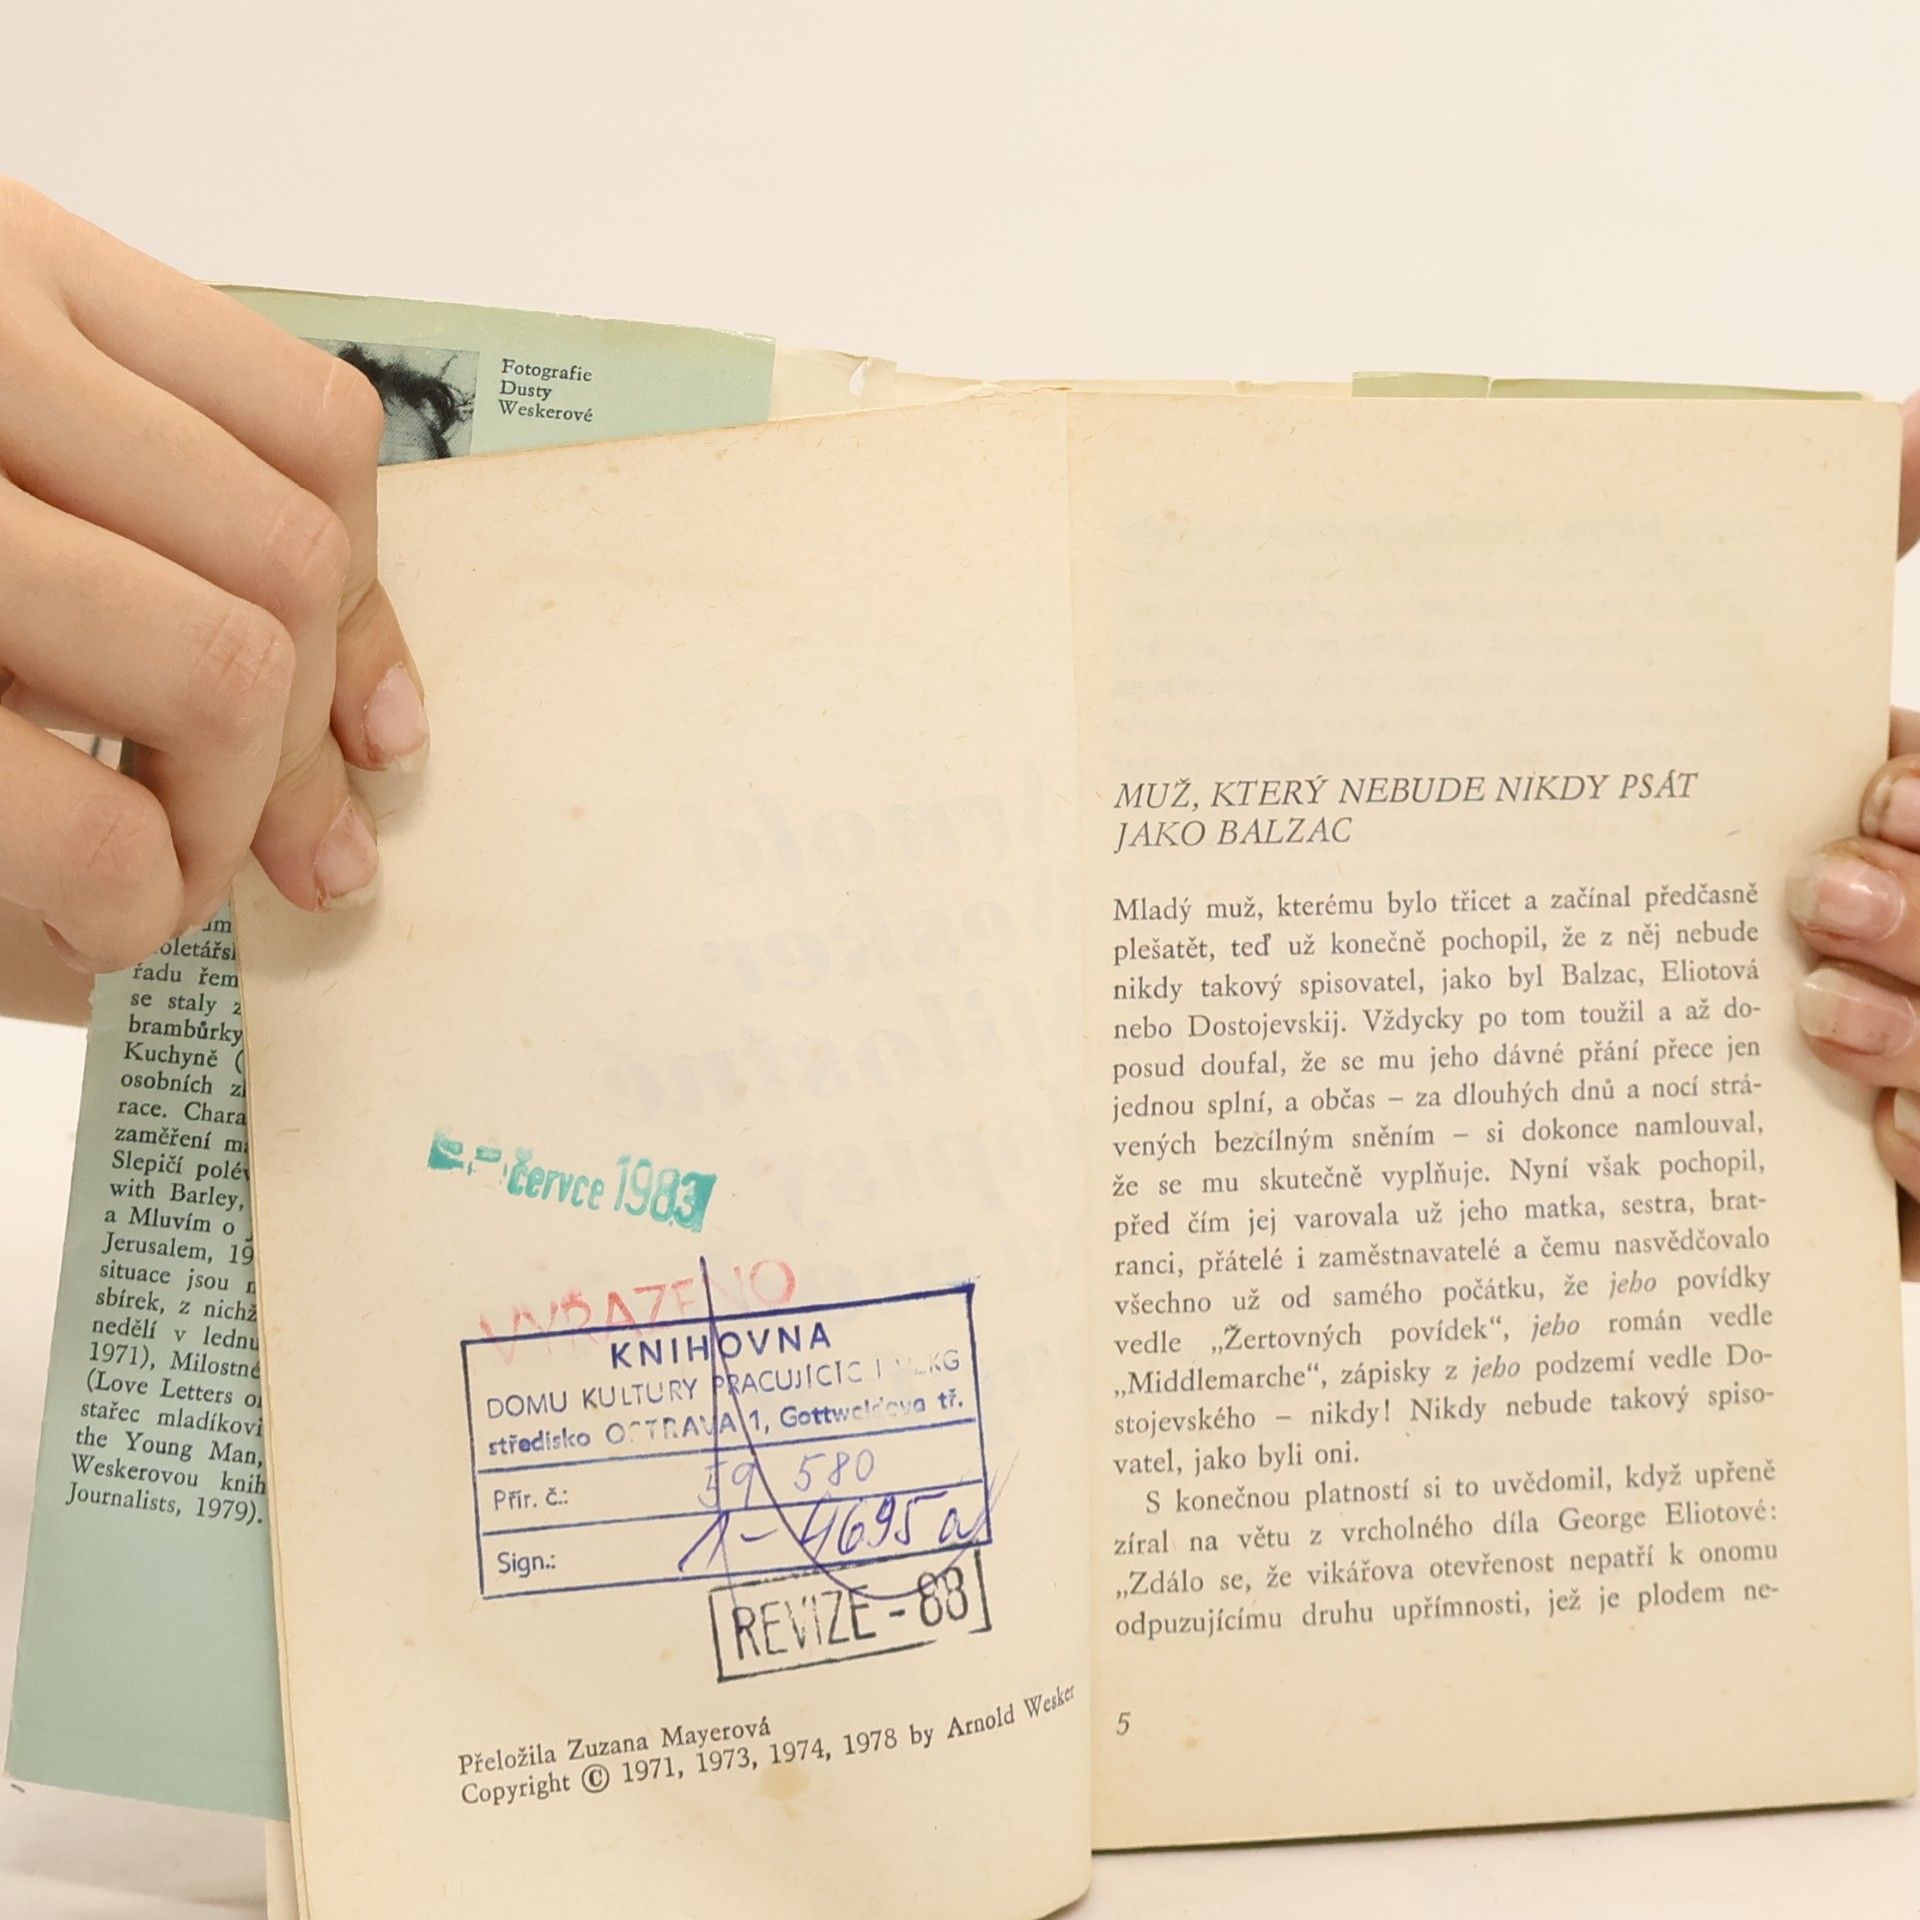 Fotografie
Dusty
Weskerové
řadu řem
se staly z
brambůrky
Kuchyně (
osobních
race. Chara
zaměření
Slepičí
with Barley,
a Mluvím o
Jerusalem, 19
situace jsou
sbírek, z nichž
nedělí v lednu
1971), Milostné
(Love Letters
stařec mladíkovi
the Young Man,
Weskerovou knih
Journalists, 1979).
července 1983
VYŘAZENO
KNIHOVNA
DOMU KULTURY PRACUJÍCÍCH
středisko OSTRAVA 1, Gottwaldova tř.
Přír. č.: 59 580
Sign.: 1-4695a
REVIZE - 88
Přeložila Zuzana Mayerová
Copyright © 1971, 1973, 1974, 1978 by Arnold Wesker
MUŽ, KTERÝ NEBUDE NIKDY PSÁT
JAKO BALZAC
Mladý muž, kterému bylo třicet a začínal předčasně
plešatět, teď už konečně pochopil, že z něj nebude
nikdy takový spisovatel, jako byl Balzac, Eliotová
nebo Dostojevskij. Vždycky po tom toužil a až do-
posud doufal, že se mu jeho dávné přání přece jen
jednou splní, a občas – za dlouhých dnů a nocí strá-
vených bezcílným sněním – si dokonce namlouval,
že se mu skutečně vyplňuje. Nyní však pochopil,
před čím jej varovala už jeho matka, sestra, brat-
ranci, přátelé i zaměstnavatelé a čemu nasvědčovalo
všechno už od samého počátku, že jeho povídky
vedle „Žertovných povídek“, jeho román vedle
„Middlemarche“, zápisky z jeho podzemí vedle Do-
stojevského – nikdy! Nikdy nebude takový spiso-
vatel, jako byli oni.
S konečnou platností si to uvědomil, když upřeně
zíral na větu z vrcholného díla George Eliotové:
„Zdálo se, že vikářova otevřenost nepatří k onomu
odpuzujícímu druhu upřímnosti, jež je plodem ne-
5